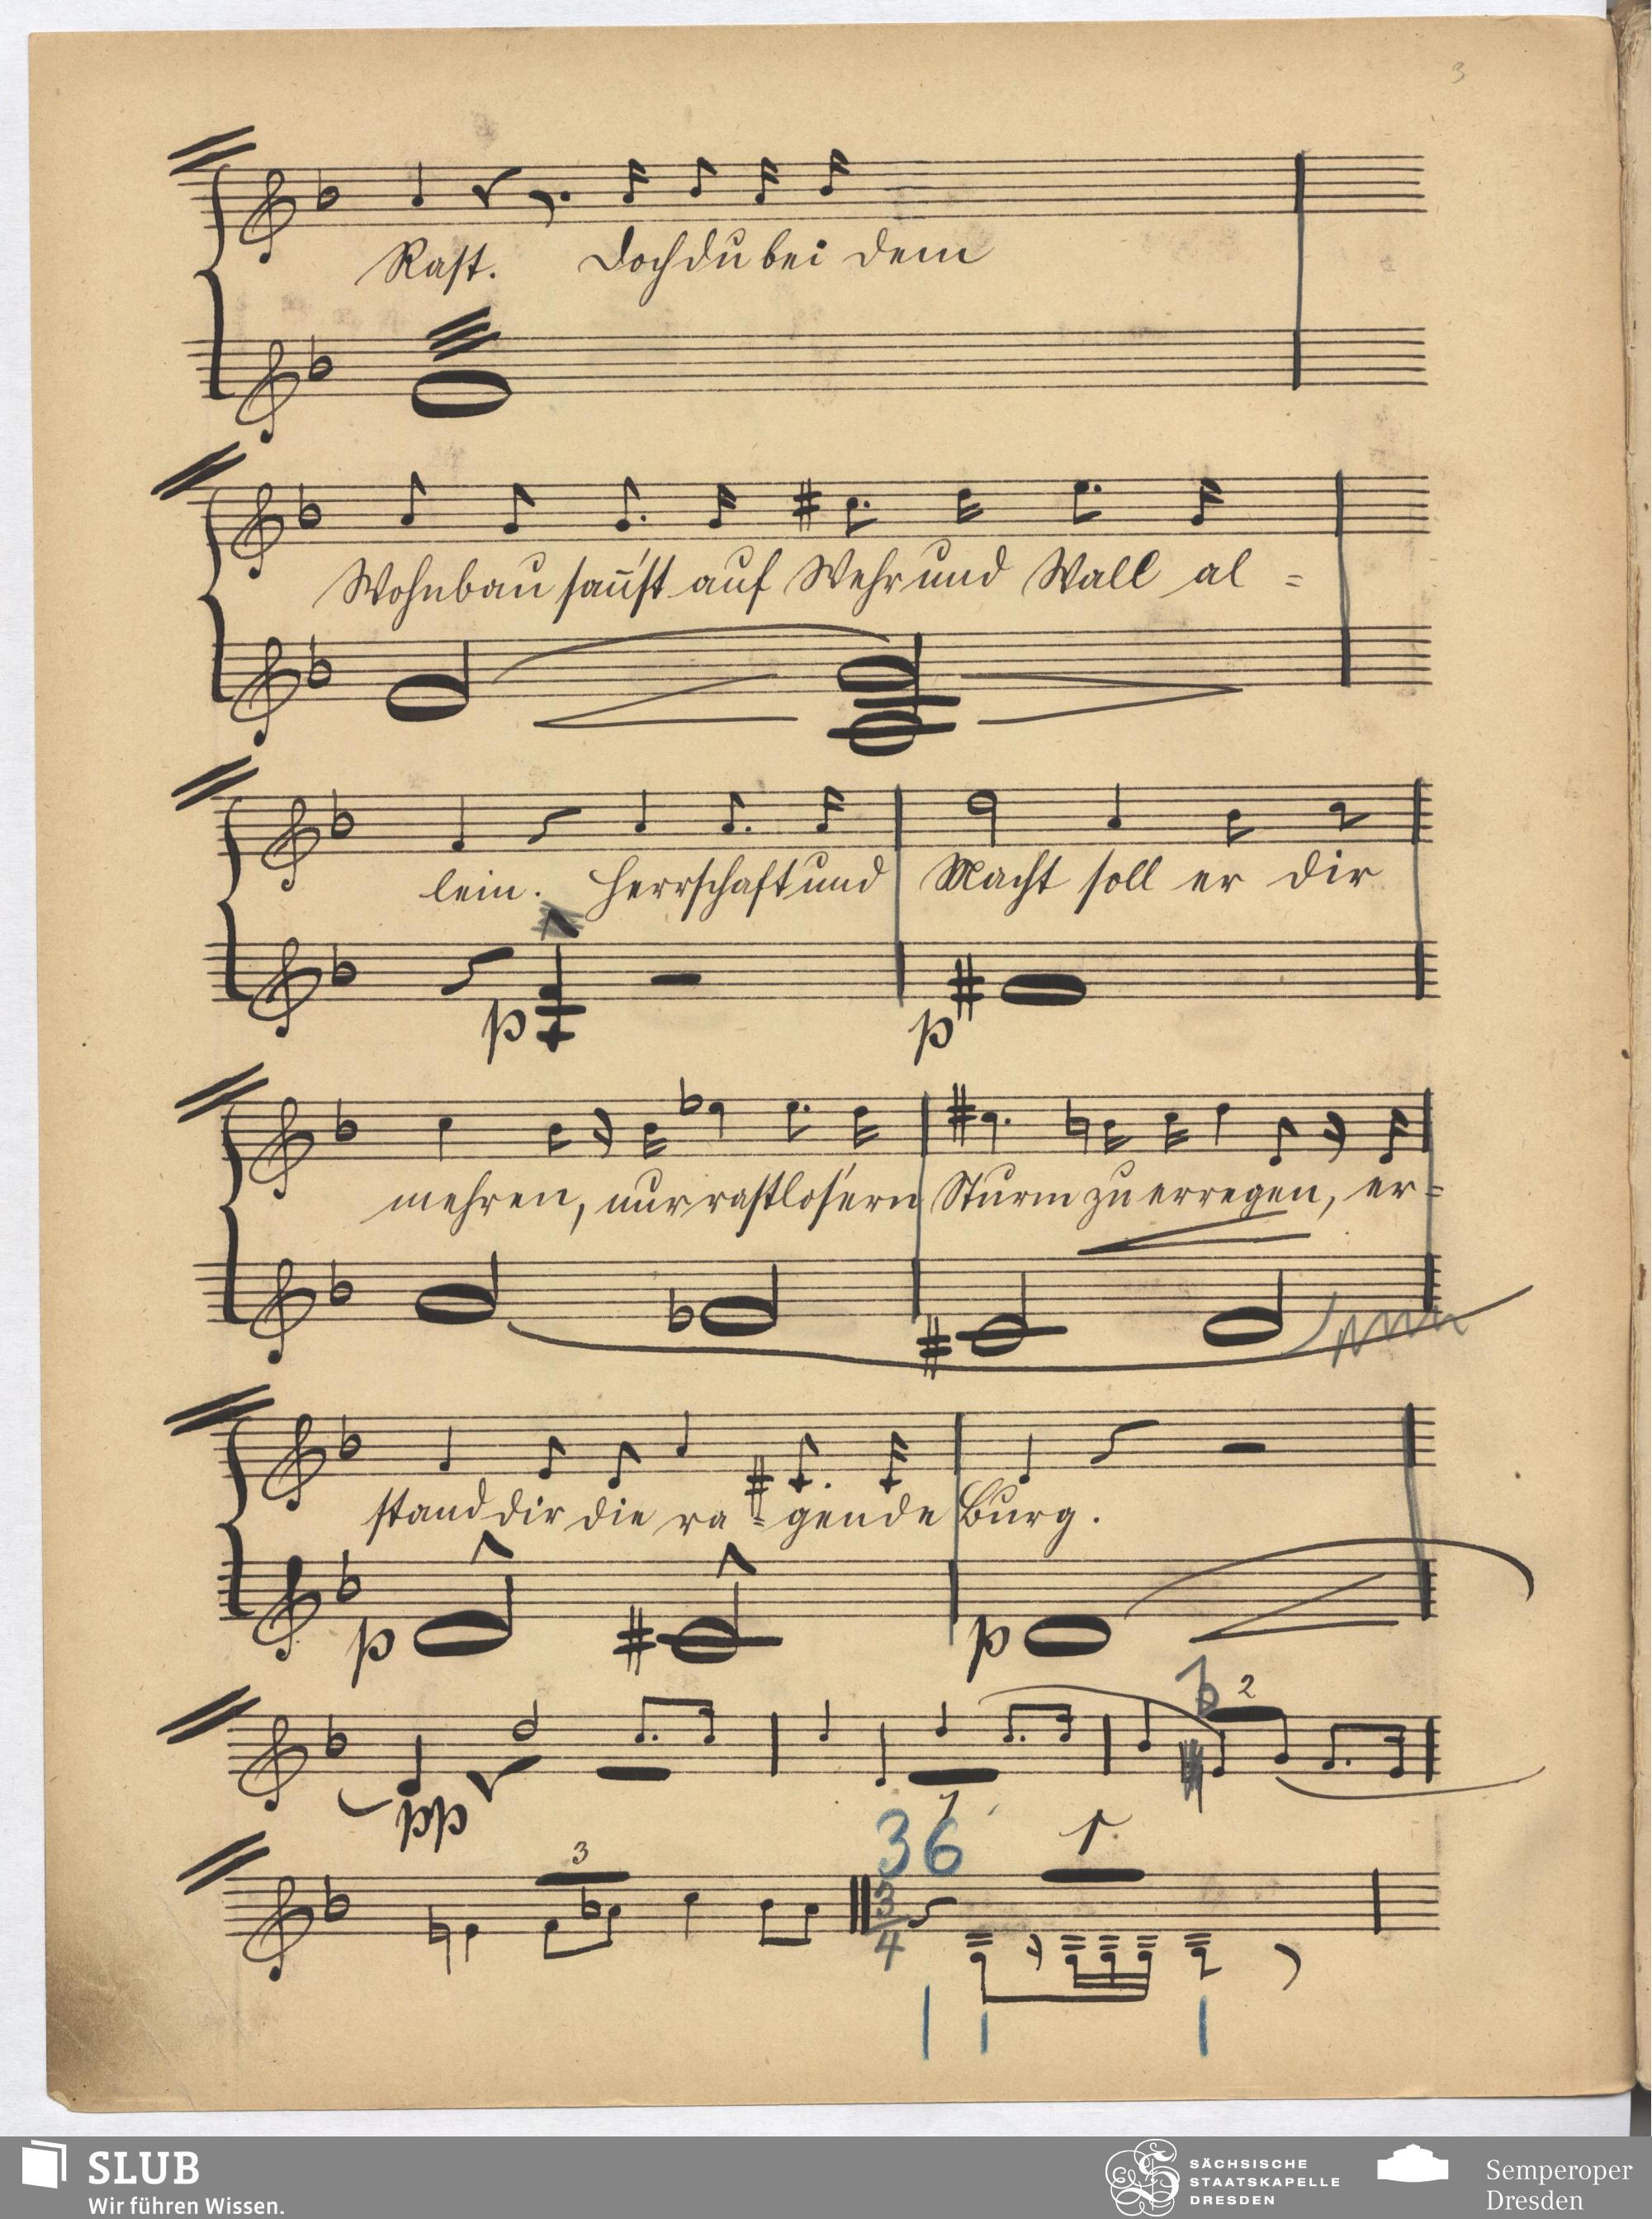 3
Rast. Doch du bei dem
Wohnbau sann'st auf Wehr und Wall al=
lein. Herrschaft und Macht soll er dir
p p
mehren, nur rastlosern Sturm zu erregen, er=
stand dir die ra=gende Burg.
p p
2
pp
1
36
3
3
4
SLUB
Wir führen Wissen.
SÄCHSISCHE
STAATSKAPELLE
DRESDEN
Semperoper
Dresden